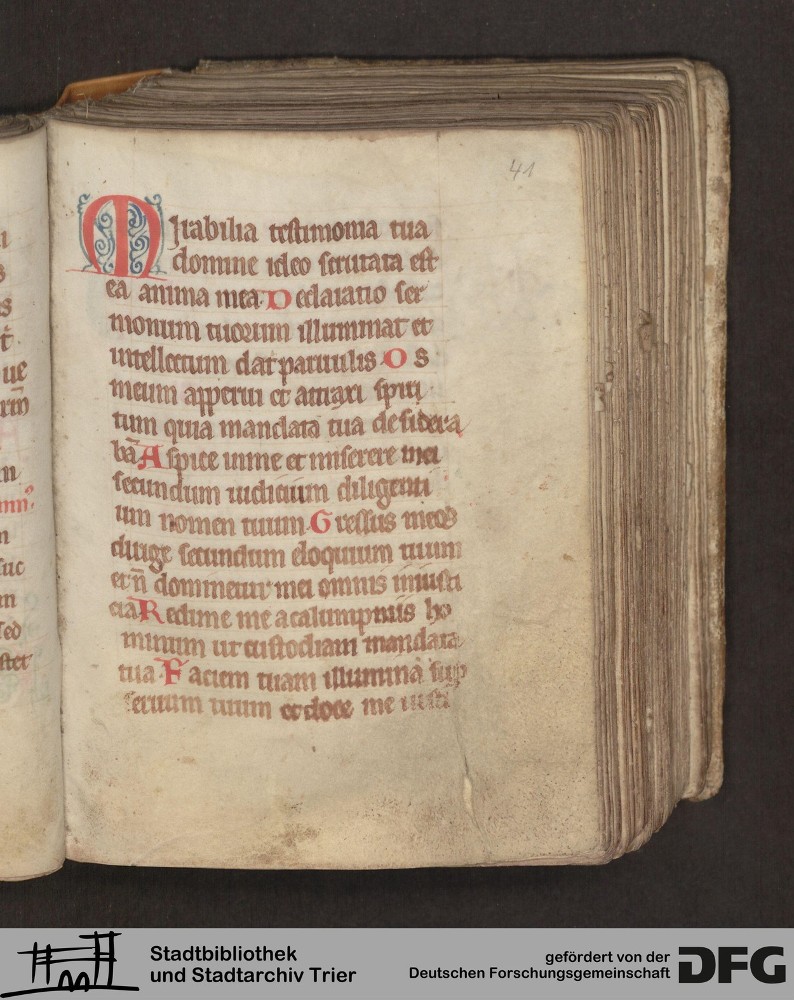 41
Mirabilia testimonia tua
domine ideo scrutata est
ea anima mea. Declaratio ser
monum tuorum illuminat et
intellectum dat paruulis Os
meum apperui et attraxi spiri
tum quia mandata tua desidera
bā Aspice in me et miserere mei
secundum iudicium diligenti
um nomen tuum Gressus meos
dirige secundum eloquium tuum
et n̄ dominetur mei omnis iniusti
cia Redime me a calumpniis ho
minum ut custodiam mandata
tua Faciem tuam illumina sup
seruum tuum et doce me iusti
Stadtbibliothek
und Stadtarchiv Trier
gefördert von der
Deutschen Forschungsgemeinschaft
DFG